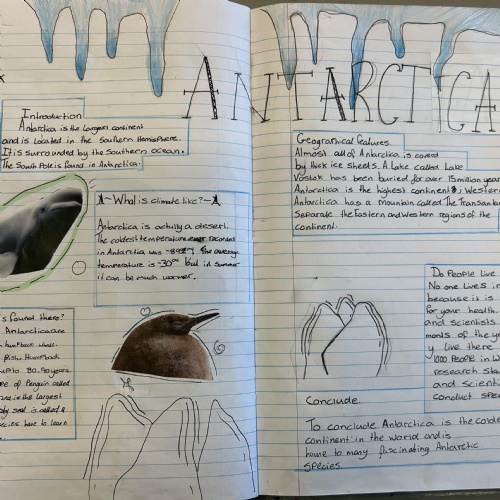 ANTARCTICA
Introduction
Antarctica is the Largest continent
and is Located in the Southern Hemisphere.
It is surrounded by the Southern ocean.
The South Pole is found in Antarctica.
What is climate like?
Antarctica is actully a desert.
The coldest temperature recorded
in Antarctica was The average
temperature is -30°C but in summer
it can be much warmer.
is found there?
Antarctica are
humpback whale.
fish. Humpback
up to 80-90 years.
of Penguin called
is the largest
seal is called a
species have to learn
Geographical features.
Almost all of Antarctica is covered
by thick ice sheets. A Lake called Lake
Vostok has been buried for over 15 million year
Antarctica is the highest continent Western
Antarctica has a mountain called The Transantar
Separate the Eastern and Western regions of the
continent.
Do People Live
No one Lives in
because it is
for your health.
and scientists
months of the ye
y live there
1000 People in W
research sta
and scient
conduct spe
Conclude.
To conclude Antarctica is the colde
continent in the world and is
home to many fascinating Antarctic
species.